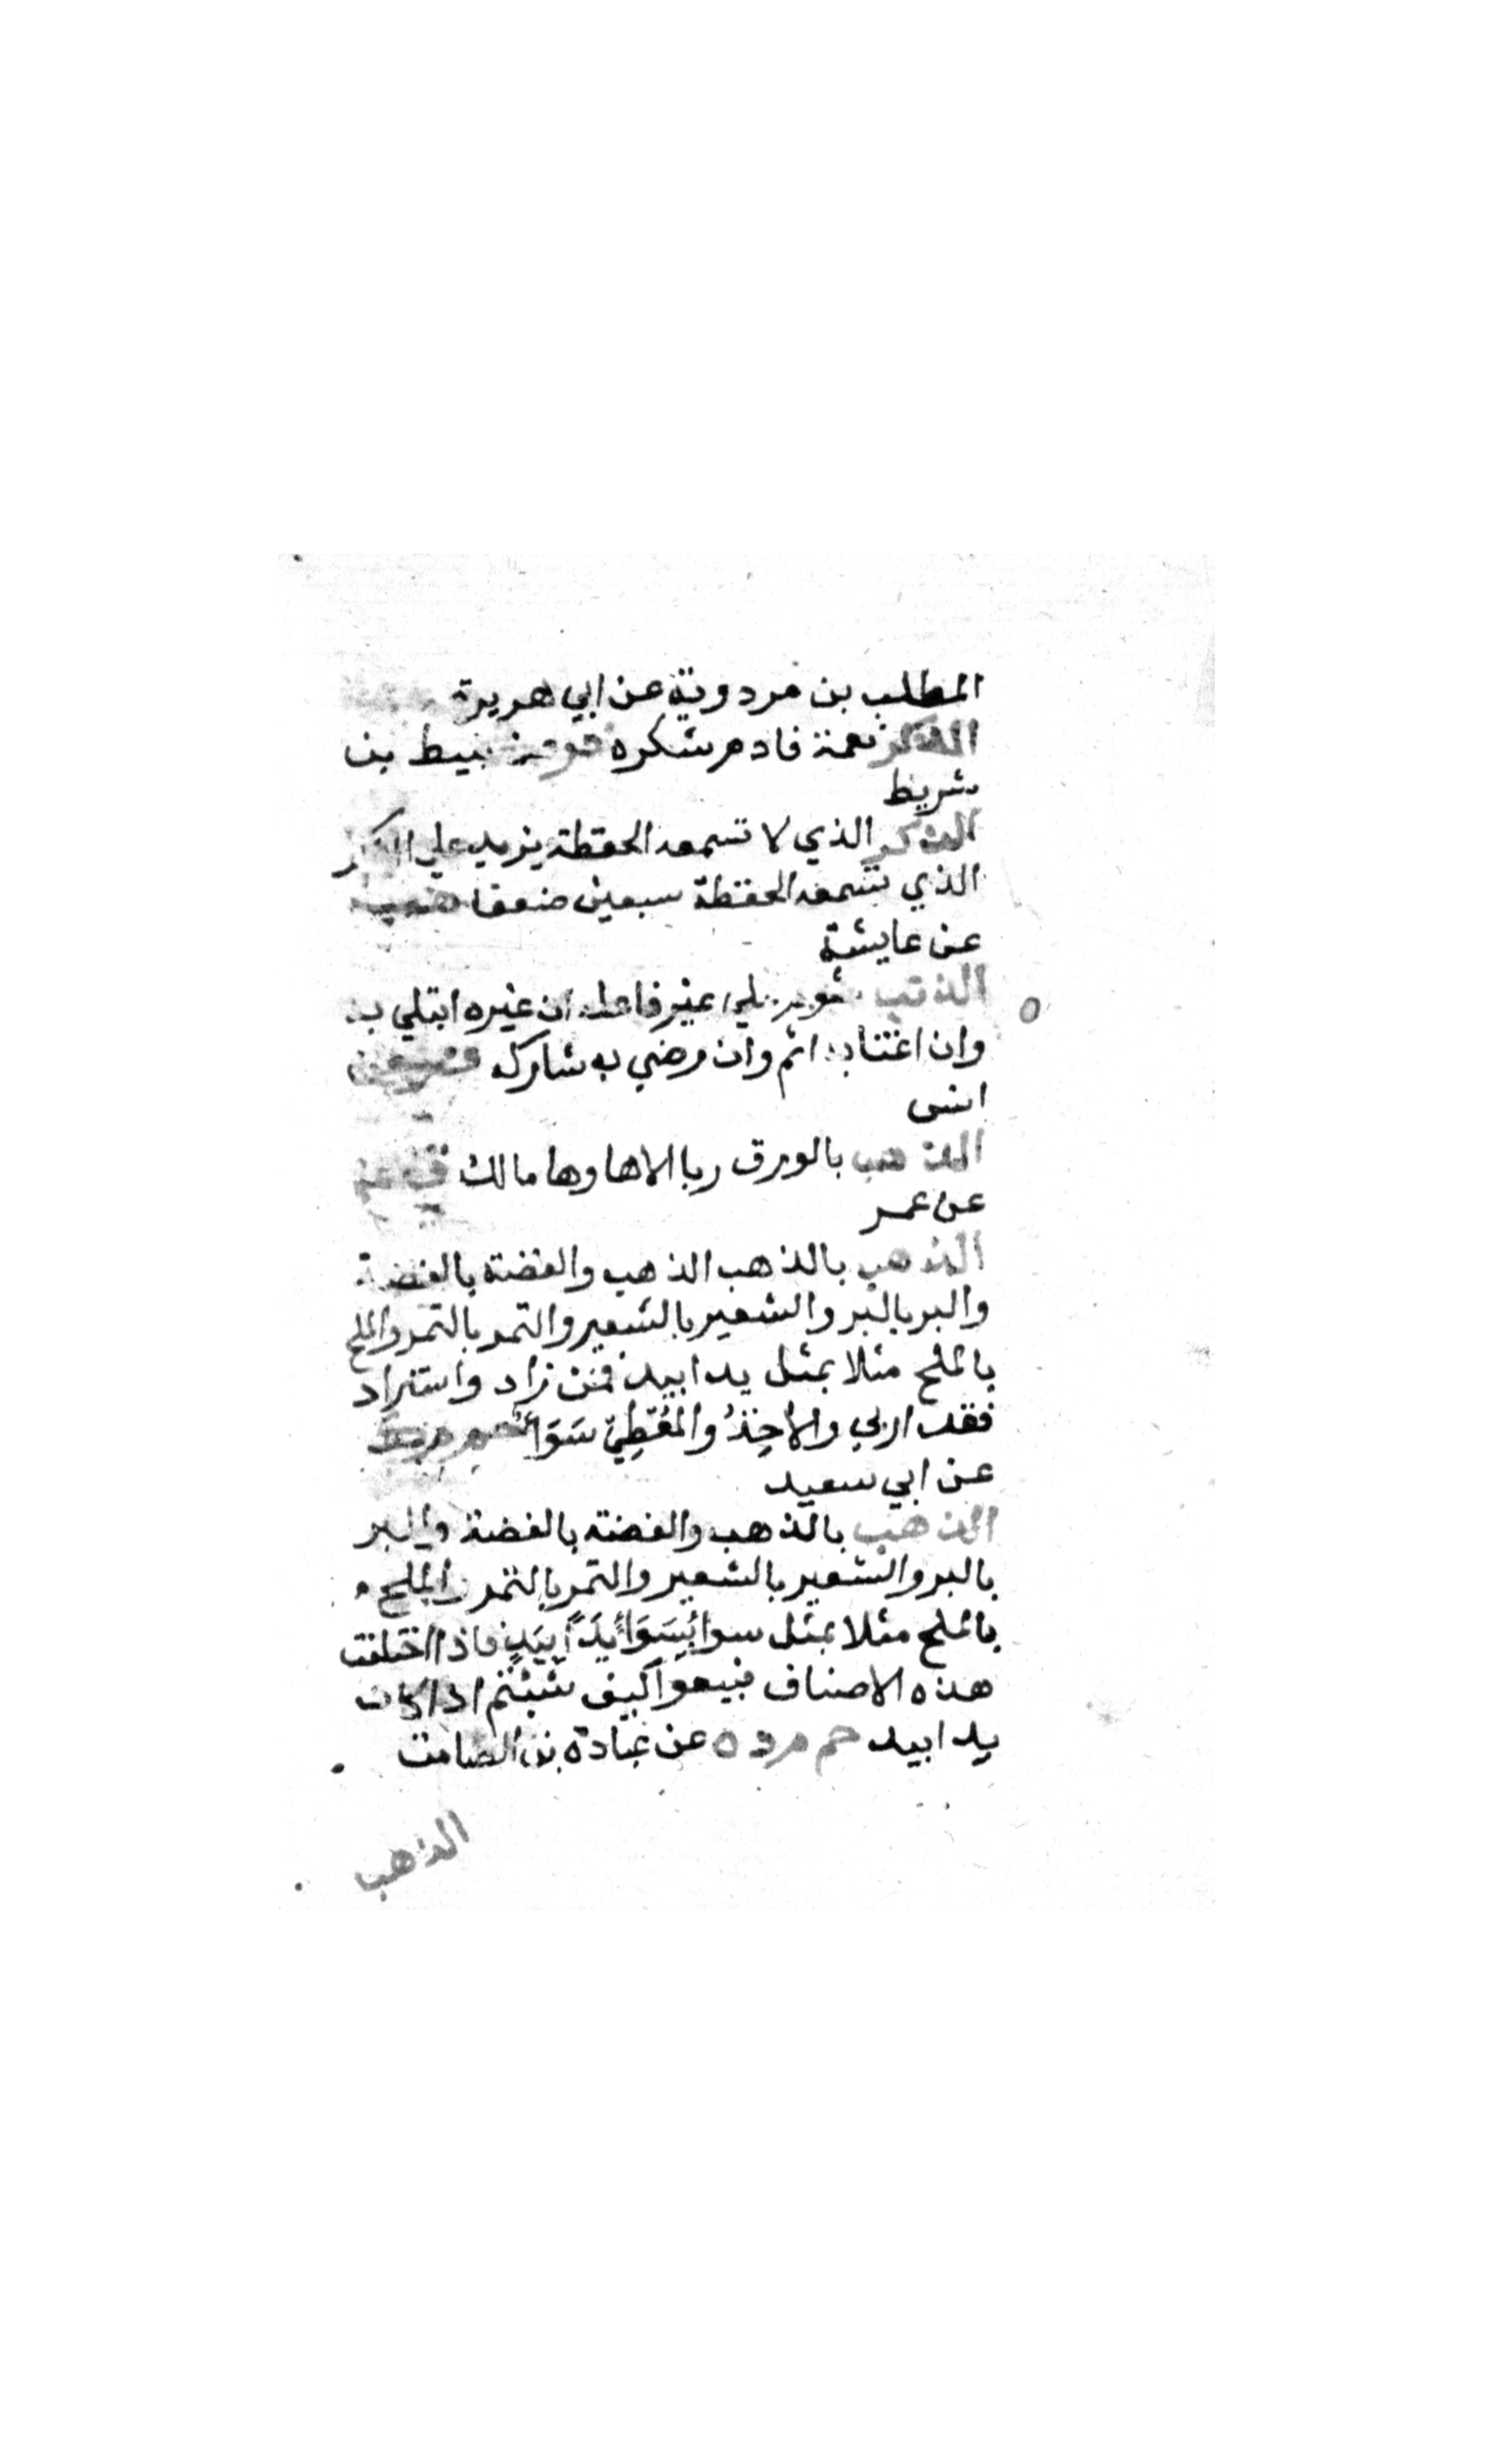 المطلب بن مردوية عن ابي هريرة
الذكر نعمة فادم شكره نبيط بن
شريط
الذكر الذي لا تسمعه الحفظة يزيد علي الذكر
الذي تسمعه الحفظة سبعين ضعفا هب
عن عايشة
الذنب شوم علي غير فاعله ان غيره ابتلي به
وان اغتابه اثم وان رضي به شاركه
انس
الذهب بالورق ربا الا ها وها مالك ق
عن عمر
الذهب بالذهب الذهب والفضة بالفضة
والبر بالبر والشعير بالشعير والتمر بالتمر والملح
بالملح مثلا بمثل يدا بيد فمن زاد واستزاد
فقد اربي والاخِذُ والمُعْطِيْ سَوَاءٌ حم م ن
عن ابي سعيد
الذهب بالذهب والفضة بالفضة والبر
بالبر والشعير بالشعير والتمر بالتمر والملح
بالملح مثلا بمثل سوا بِسَوَاءٍ يَدًا بِيَدٍ فاذا اختلفت
هذه الاصناف فبيعوا كيف شئتم اذا كان
يدا بيد حم م د ه عن عبادة بن الصامت
الذهب